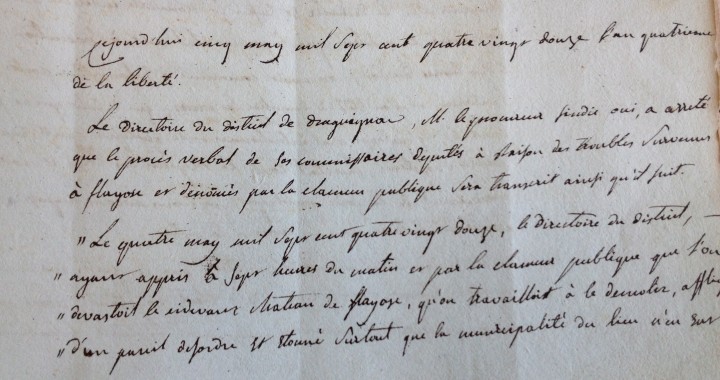 aujourd'hui cinq may mil sept cent quatre vingt douze l'an quatrieme
de la liberté.
Le directoire du district de draguignan, M. le procureur sindic oui, a arreté
que le procès verbal de ses commissaires deputés à raison des troubles survenus
à flayosc et dénoncés par la clameur publique sera transcrit ainsi qu'il suit.
" Le quatre may mil sept cent quatre vingt douze, le directoire du district, —
" ayant appris à sept heures du matin et par la clameur publique que l'on
" devastoit le cidevant chateau de flayosc, qu'on travailloit à le demolir,
" d'un pareil desordre et etonné surtout que la municipalité du lieu n'en eut